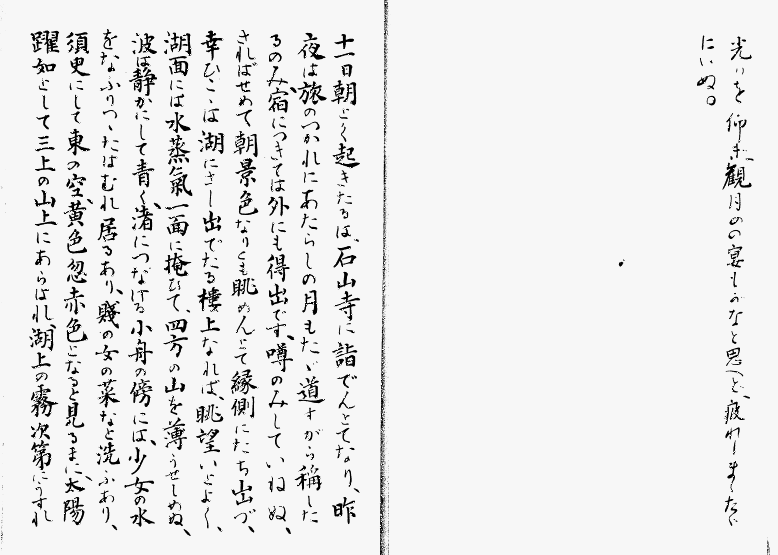 光りを仰ぎ、観月の宴もがなと思へど、疲れしまゝたゞ
にいぬ。
十一日朝とく起きたるは、石山寺に詣でんとてなり、昨
夜は旅のつかれにあたらしの月もたゞ道すがら稱した
るのみ、宿につきては外にも得出です、噂のみしていねぬ、
さればせめて朝景色なりとも眺めんとて縁側にたち出づ、
幸ひこゝは湖にさし出でたる樓上なれば、眺望いとよく、
湖面には水蒸氣一面に掩ひて、四方の山を薄うせしめぬ、
波は静かにして青く、渚につなげる小舟の傍には、少女の水
をなぶりつゝたはむれ居るあり、賤の女の菜など洗ふあり、
須臾にして東の空、黄色忽赤色となると見るまに、太陽
躍如として三上の山上にあらはれ、湖上の霧次第にうすれ